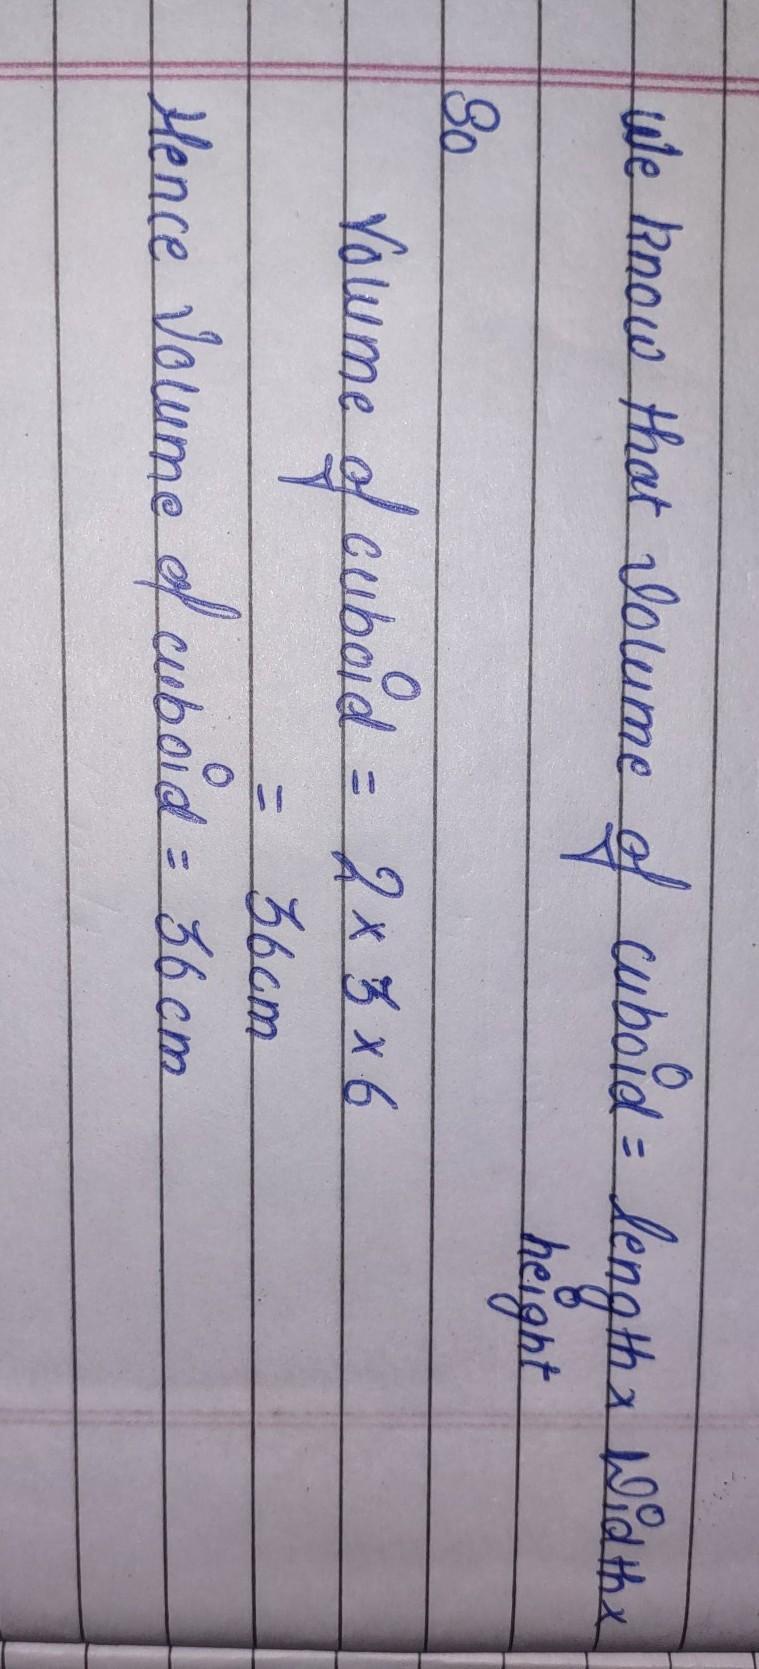 We know that volume of cuboid = length x width x
height
So
Volume of cuboid = 2 x 3 x 6
= 36cm
Hence Volume of cuboid = 36cm